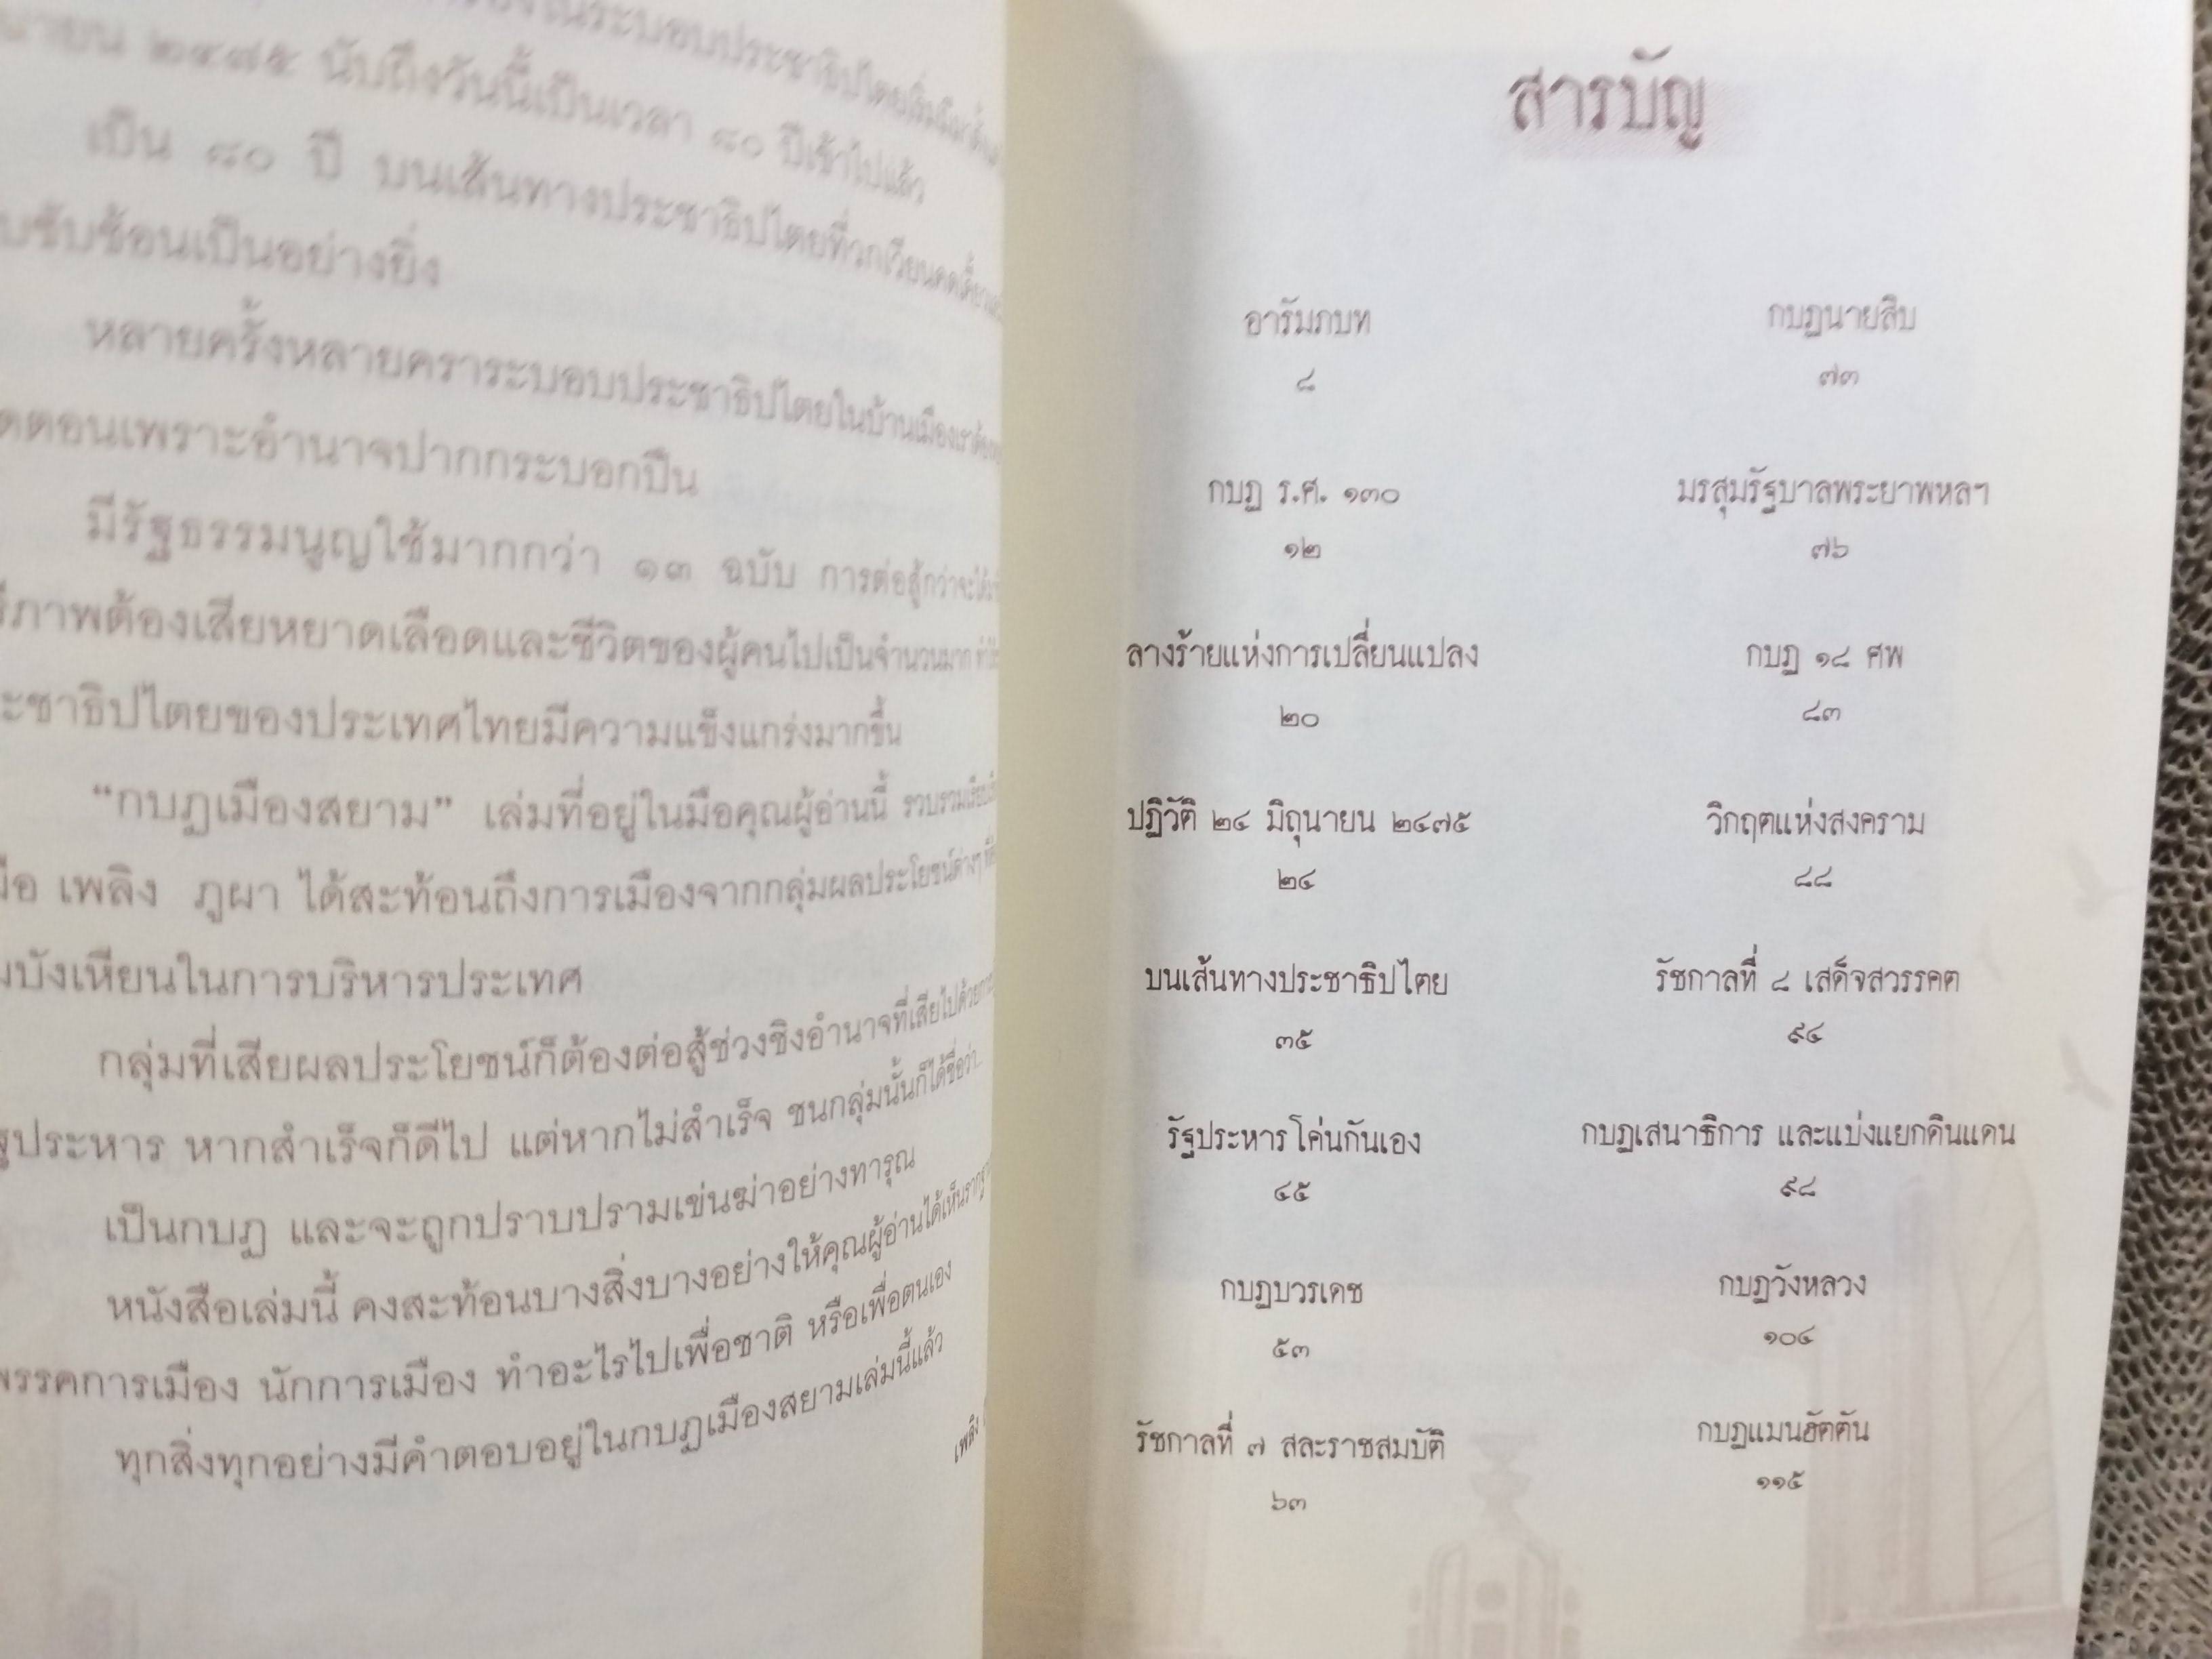 ระบอบประชาธิปไตย
๒๔๗๕ นับถึงวันนี้เป็นเวลา ๘๐ ปีเข้าไปแล้ว
เป็น ๘๐ ปี บนเส้นทางประชาธิปไตยที่วกเวียนคดเคี้ยว
ซับซ้อนเป็นอย่างยิ่ง
หลายครั้งหลายคราระบอบประชาธิปไตยในบ้านเมืองเราต้อง
ตอนเพราะอำนาจปากกระบอกปืน
มีรัฐธรรมนูญใช้มากกว่า ๑๓ ฉบับ การต่อสู้กว่าจะได้
ต้องเสียหยาดเลือดและชีวิตของผู้คนไปเป็นจำนวนมาก
ะชาธิปไตยของประเทศไทยมีความแข็งแกร่งมากขึ้น
“กบฏเมืองสยาม” เล่มที่อยู่ในมือคุณผู้อ่านนี้ รวบรวมเรียบเรียง
เพลิง ภูผา ได้สะท้อนถึงการเมืองจากกลุ่มผลประโยชน์ต่างๆ
บังเหียนในการบริหารประเทศ
กลุ่มที่เสียผลประโยชน์ก็ต้องต่อสู้ช่วงชิงอำนาจที่เสียไปด้วยการ
ฐประหาร หากสำเร็จก็ดีไป แต่หากไม่สำเร็จ ชนกลุ่มนั้นก็ได้ชื่อว่า...
เป็นกบฏ และจะถูกปราบปรามเข่นฆ่าอย่างทารุณ
หนังสือเล่มนี้ คงสะท้อนบางสิ่งบางอย่างให้คุณผู้อ่านได้เห็น
พรรคการเมือง นักการเมือง ทำอะไรไปเพื่อชาติ หรือเพื่อตนเอง
ทุกสิ่งทุกอย่างมีคำตอบอยู่ในกบฏเมืองสยามเล่มนี้แล้ว
เพลิง
สารบัญ
อารัมภบท
๘
กบฏ ร.ศ. ๑๓๐
๑๒
ลางร้ายแห่งการเปลี่ยนแปลง
๒๐
ปฏิวัติ ๒๔ มิถุนายน ๒๔๗๕
๒๔
บนเส้นทางประชาธิปไตย
๓๕
รัฐประหารโค่นกันเอง
๔๕
กบฏบวรเดช
๕๓
รัชกาลที่ ๗ สละราชสมบัติ
๖๓
กบฏนายสิบ
๗๓
มรสุมรัฐบาลพระยาพหลฯ
๗๖
กบฏ ๑๘ ศพ
๘๓
วิกฤตแห่งสงคราม
๘๘
รัชกาลที่ ๘ เสด็จสวรรคต
๙๔
กบฏเสนาธิการ และแบ่งแยกดินแดน
๙๘
กบฏวังหลวง
๑๐๔
กบฏแมนฮัตตัน
๑๑๕